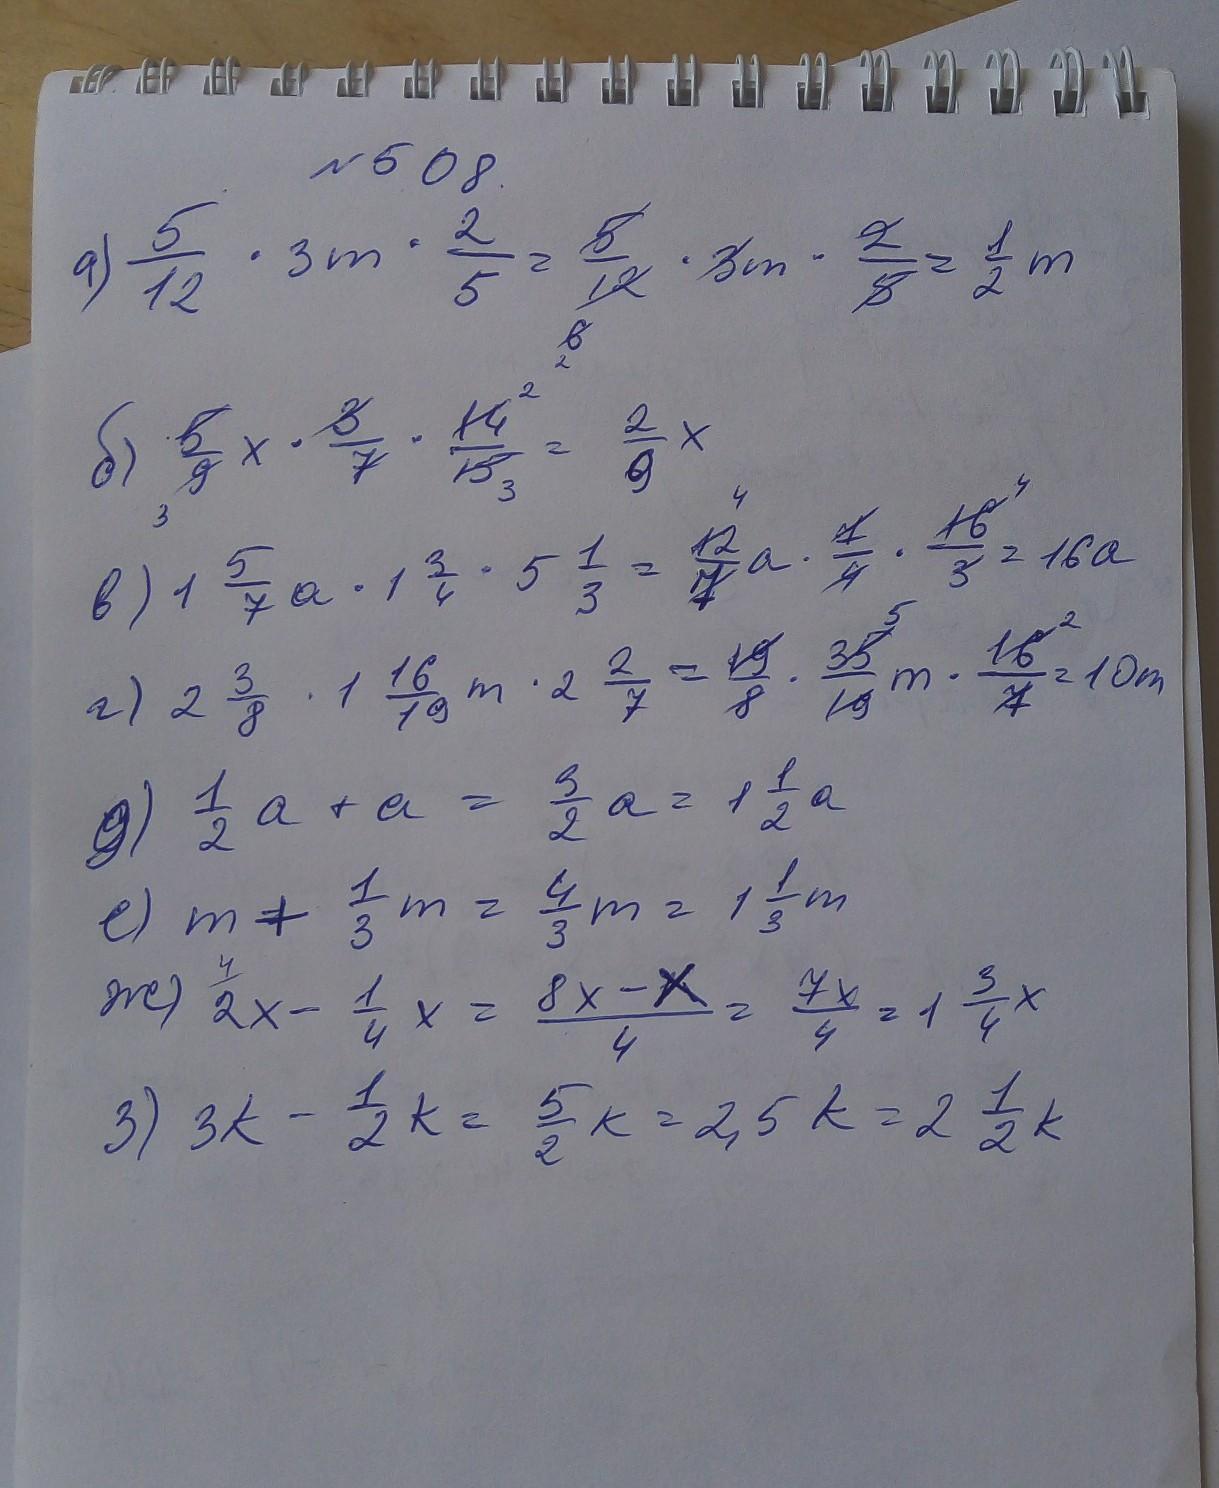 №508.
а) 5/12 · 3m · 2/5 = 5/12 · 3m · 2/5 = 1/2 m
6
2
б) 5/9 x · 3/7 · 14/15 = 2/9 x
2
3 3
в) 1 5/7 a · 1 3/4 · 5 1/3 = 12/7 a · 7/4 · 16/3 = 16a
4 4
г) 2 3/8 · 1 16/19 m · 2 2/7 = 19/8 · 35/19 m · 16/7 = 10m
5 2
д) 1/2 a + a = 3/2 a = 1 1/2 a
е) m + 1/3 m = 4/3 m = 1 1/3 m
ж) 2x - 1/4 x = 8x - x/4 = 7x/4 = 1 3/4 x
4
з) 3k - 1/2 k = 5/2 k = 2,5 k = 2 1/2 k